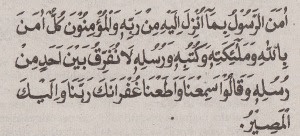 اٰمَنَ الرَّسُوْلُ بِمَآ اُنْزِلَ اِلَيْهِ مِنْ رَّبِّهٖ وَالْمُؤْمِنُوْنَ كُلٌّ اٰمَنَ
بِاللّٰهِ وَمَلٰٓئِكَتِهٖ وَكُتُبِهٖ وَرُسُلِهٖ لَا نُفَرِّقُ بَيْنَ اَحَدٍ مِّنْ
رُّسُلِهٖ وَقَالُوْا سَمِعْنَا وَاَطَعْنَا غُفْرَانَكَ رَبَّنَا وَاِلَيْكَ
الْمَصِيْرُ.